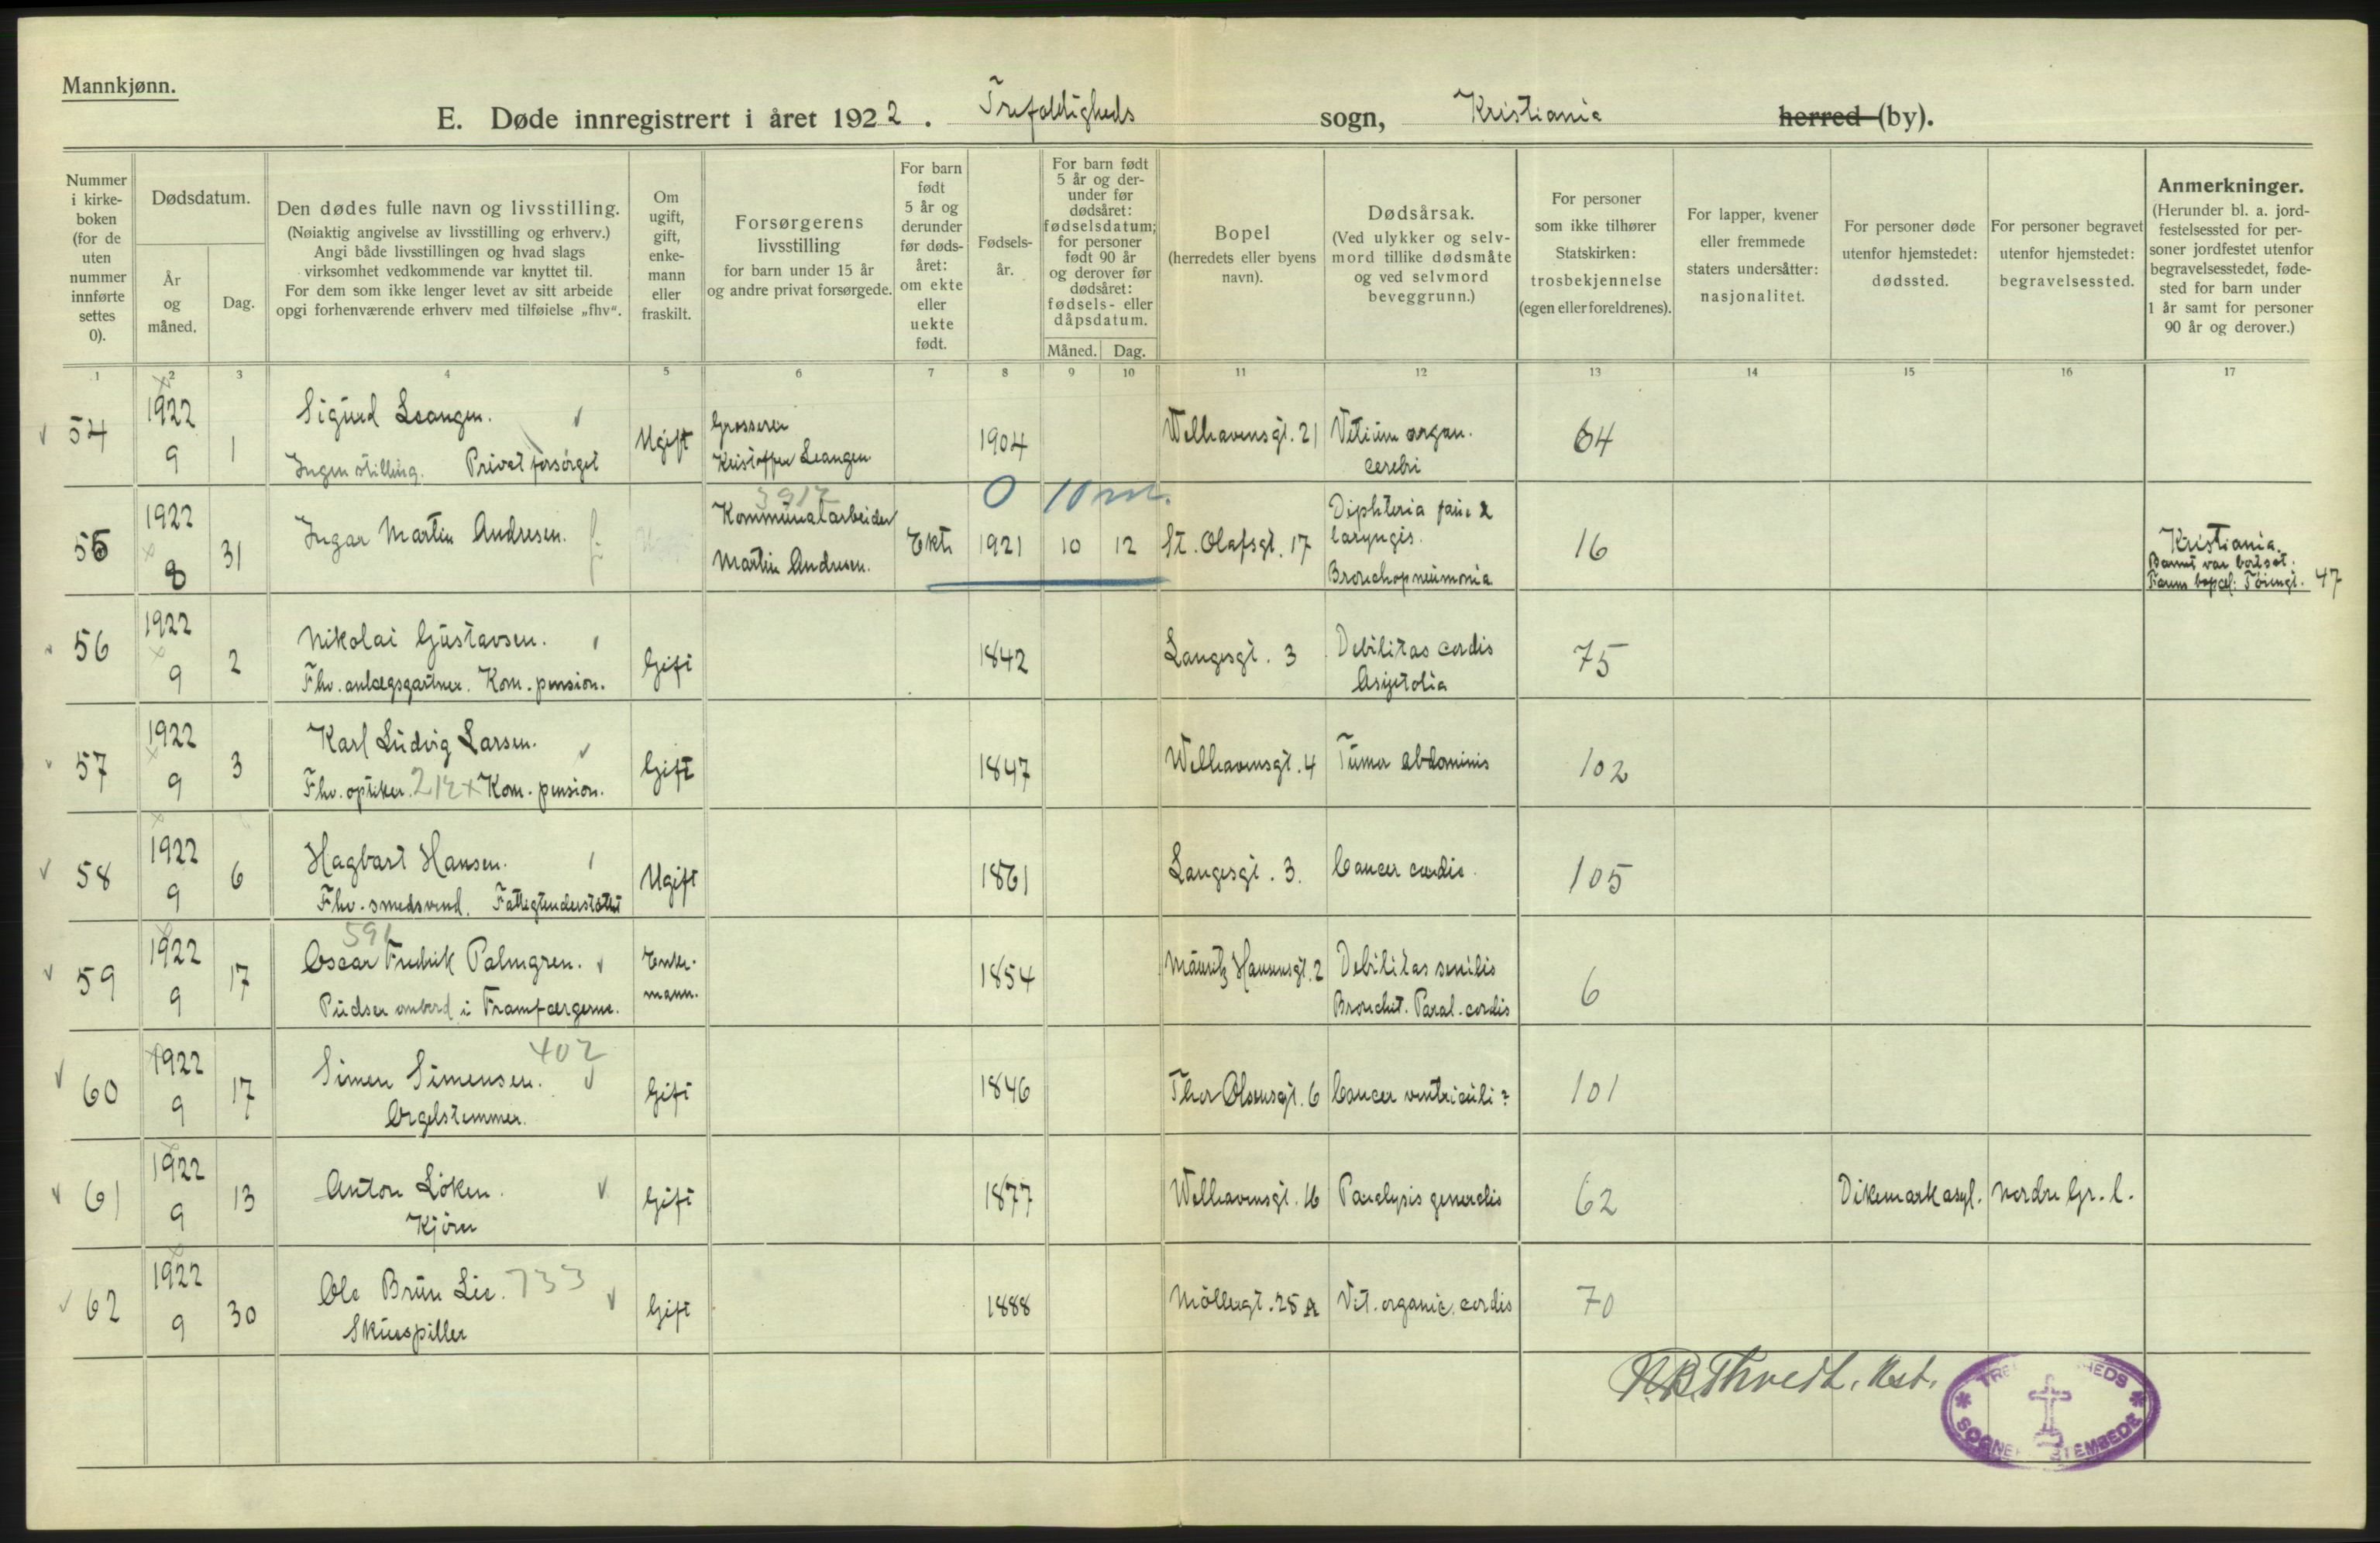 Mannkjønn.
E. Døde innregistrert i året 1922. Trefoldigheds sogn, Kristiania herred (by).
Nummer i kirke-boken (for de uten nummer innførte settes 0).
Dødsdatum.
År og måned.
Dag.
Den dødes fulle navn og livsstilling.
(Nøiaktig angivelse av livsstilling og erhverv.)
Angi både livsstillingen og hvad slags
virksomhet vedkommende var knyttet til.
For dem som ikke lenger levet av sitt arbeide
opgi forhenværende erhverv med tilføielse „fhv“.
Om ugift, gift, enke-mann eller fraskilt.
Forsørgerens livsstilling
for barn under 15 år
og andre privat forsørgede.
For barn født 5 år og derunder før døds-året: om ekte eller uekte født.
Fødsels-år.
For barn født 5 år og der-under før dødsåret: fødselsdatum; for personer født 90 år og derover før dødsåret: fødsels- eller dåpsdatum.
Måned. Dag.
Bopel
(herredets eller byens navn).
Dødsårsak.
(Ved ulykker og selv-mord tillike dødsmåte og ved selvmord beveggrunn.)
For personer som ikke tilhører Statskirken: trosbekjennelse (egen eller foreldrenes).
For lapper, kvener eller fremmede staters undersåtter: nasjonalitet.
For personer døde utenfor hjemstedet: dødssted.
For personer begravet utenfor hjemstedet: begravelsessted.
Anmerkninger.
(Herunder bl. a. jord-festelsessted for per-soner jordfestet utenfor begravelsesstedet, føde-sted for barn under 1 år samt for personer 90 år og derover.)
1 2 3 4 5 6 7 8 9 10 11 12 13 14 15 16 17
54 1922 9 1 Sigurd Leangen. Ugift Grosserer 1904 Welhavensgt. 21 Vitium organ. 64
Ingen stilling. Privat forsørget Kristoffer Leangen. cerebri
3917 0 10 m.
55 1922 8 31 Ingar Martin Andresen. Kommunalarbeider Ekte 1921 10 12 St. Olafsgt. 17 Diphteria 16 Kristiania.
Martin Andresen. laryngis. Barnet var bortsat.
Bronchopneumonia Farens bopel: Tøiengt. 47
56 1922 9 2 Nikolai Gustavsen. Gift 1842 Langesgt. 3 Debilitas cordis 75
Fhv. anlægsgartner. Kom. pension. Asystolia
57 1922 9 3 Karl Ludvig Larsen. Gift 1847 Welhavensgt. 4 Tumor abdominis 102
Fhv. optiker. 212 x Kom. pension.
58 1922 9 6 Hagbart Hansen. Ugift 1861 Langesgt. 3. Cancer 105
Fhv. smedsvend. Fattigunderstøttet
591
59 1922 9 17 Oscar Fredrik Palmgren. Enke-mann. 1854 Mauritz Hansensgt. 2 Debilitas senilis 6
Pudser ombord i Framfærgerne. Bronchit. Paral. cordis
402
60 1922 9 17 Simen Simensen. Gift 1846 Thor Olsensgt. 6 Cancer ventriculi? 101
Orgelstemmer.
61 1922 9 13 Anton Löken. Gift 1877 Welhavensgt. 16 Paralysis generalis 62 Dikemark asyl. Nordre Gr. l.
Kjörer
62 1922 9 30 Ole Brun Lie. 733 Gift 1888 Möllergt. 25 A Vit. organic. cordis 70
Skuespiller